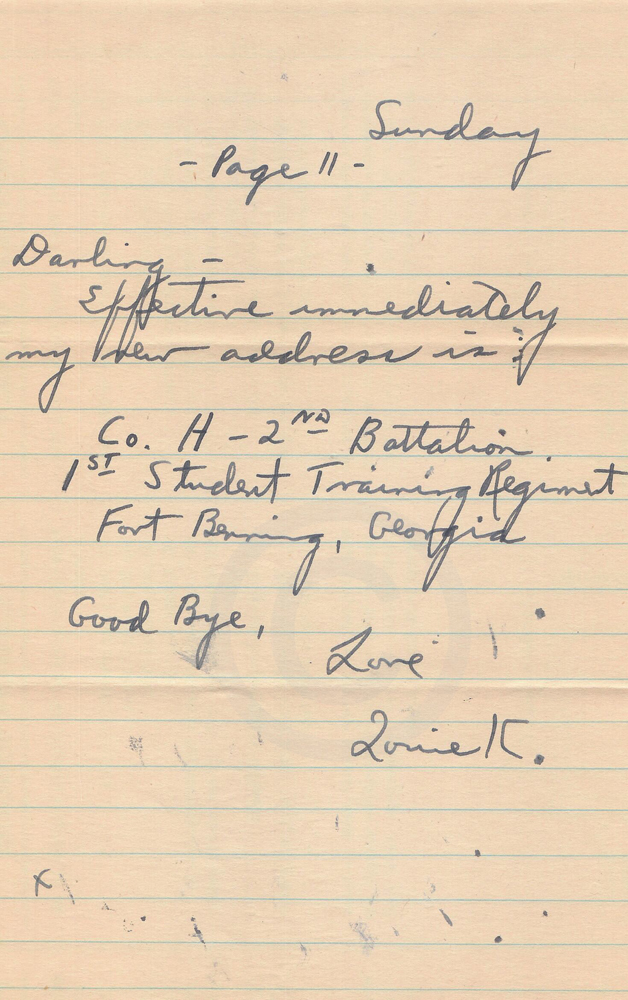 Sunday
- Page 11 -
Darling -
Effective immediately
my new address is :
Co. H - 2ND Battalion
1ST Student Training Regiment
Fort Benning, Georgia
Good Bye,
Love
Louie K.
x